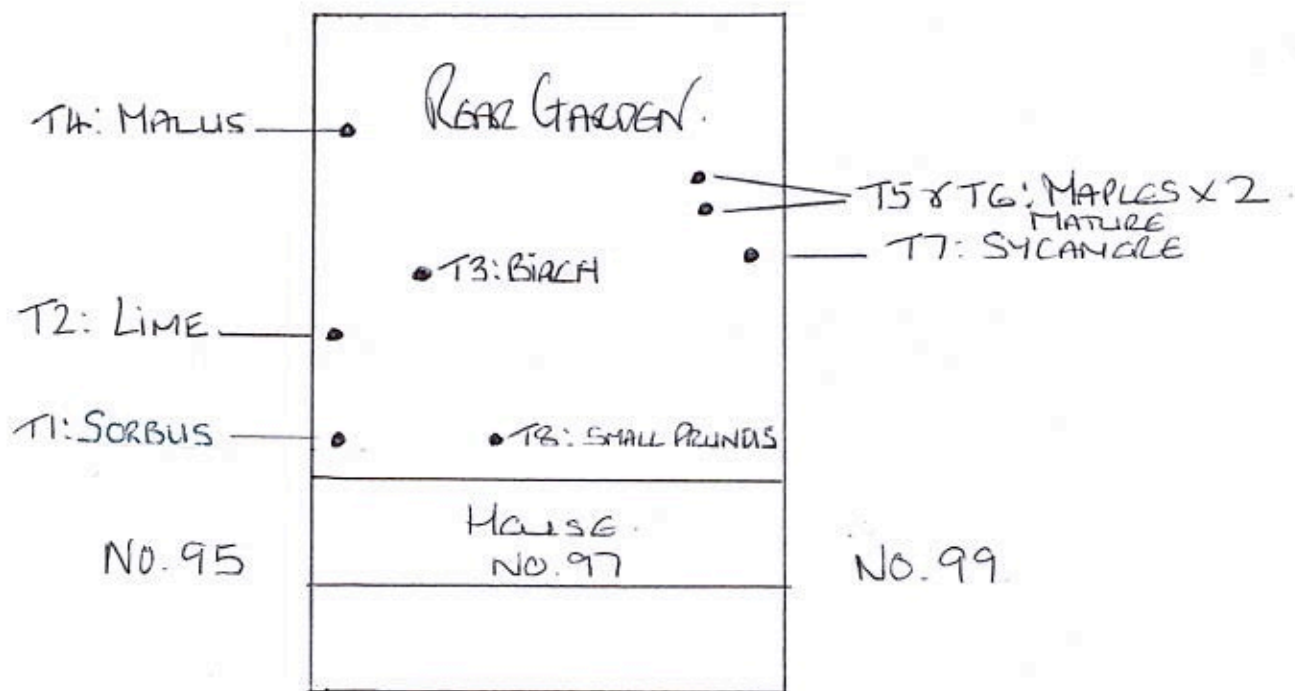 REAR GARDEN.
T4: MALUS
T5 & T6: MAPLES X 2
MATURE
T7: SYCAMORE
T3: BIRCH
T2: LIME
T1: SORBUS
T8: SMALL PRUNUS
HOUSE.
NO. 97
NO. 95
NO. 99